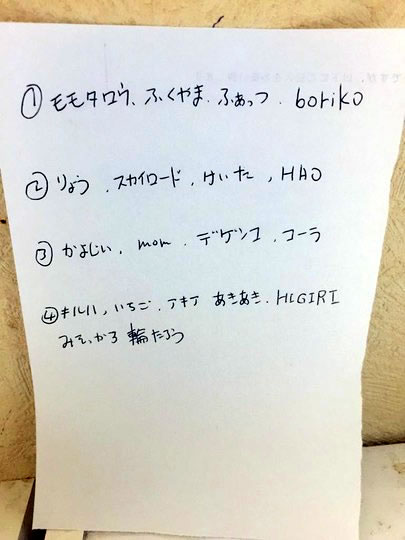 ① モモタロウ、ふくやま、ふぁっつ、boriko
② りょう、スカイロード、けいた、HAO
③ かよじい、mom、デゲンコ、コーラ
④ キルハ、いちご、アキア あきあき、HIGIRI
みそ、かろ 輪たろう